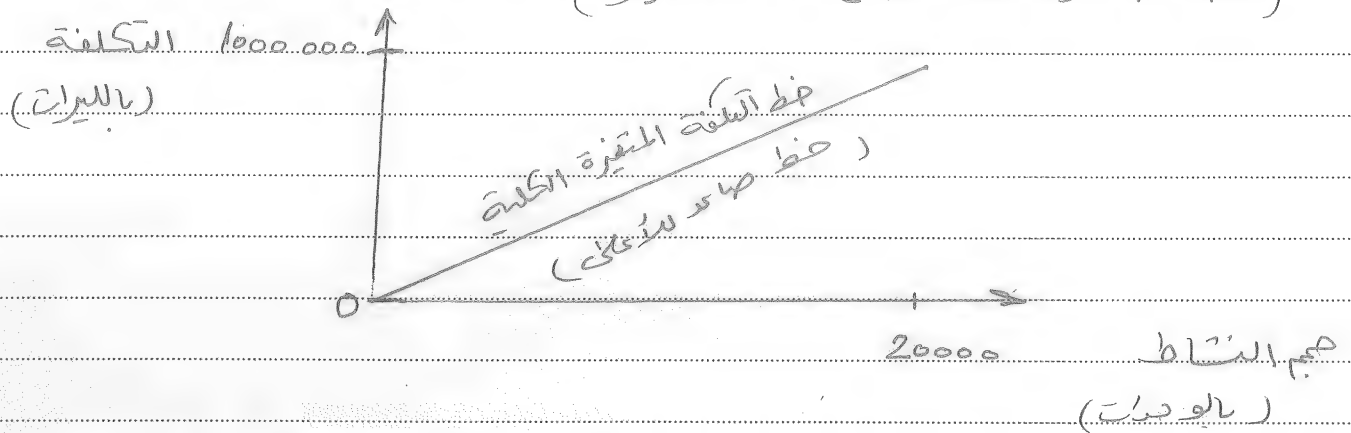 التكلفة 1000.000
(بالليرات)
خط التكلفة المتغيرة الكلية
(خط صاعد للأعلى)
0
20000 حجم النشاط
(بالوحدات)